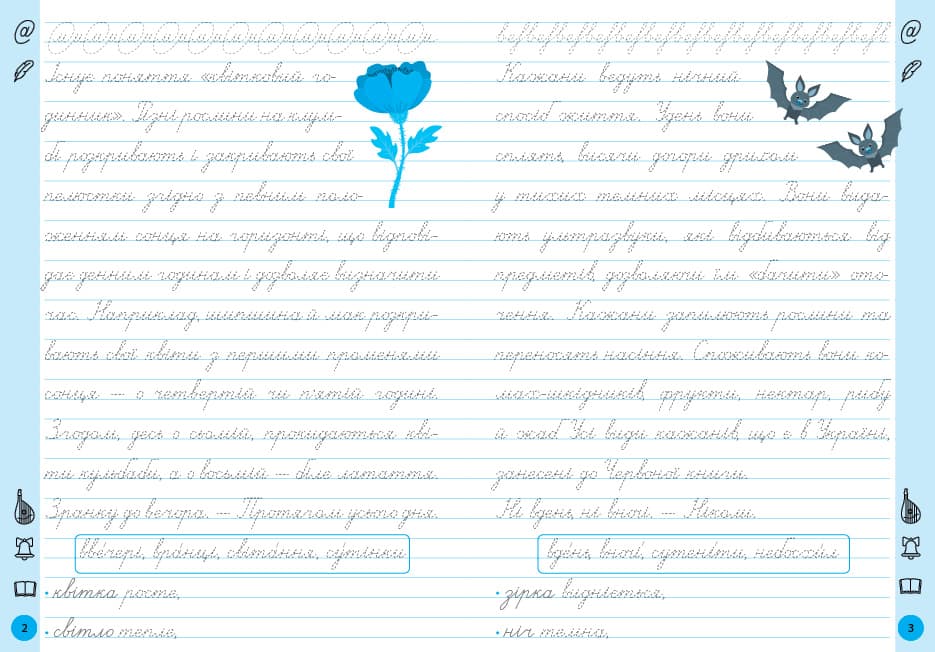 Існує поняття «квітковий го-
динник». Різні рослини на клум-
бі розкривають і закривають свої
пелюстки згідно з певним поло-
женням сонця на горизонті, що відпові-
дає денним годинам і дозволяє визначити
час. Наприклад, шипшина й мак розкри-
вають свої квіти з першими променями
сонця — о четвертій чи п'ятій годині.
Згодом, десь о сьомій, прокидаються кві-
ти кульбаби, а о восьмій — біле латаття.
Зранку до вечора. — Протягом усього дня.
вве́чері, вра́нці, світа́ння, су́тінки
• квітка росте,
• світло тепле,
2
Кажани ведуть нічний
спосіб життя. Удень вони
сплять, висячи догори дриҐом
у тихих темних місцях. Вони вида-
ють ультразвуки, які відбиваються від
предметів, дозволяючи їм «бачити» ото-
чення. Кажани запилюють рослини та
переносять насіння. Споживають вони ко-
мах-шкідників, фрукти, нектар, рибу
й жаб. Усі види кажанів, що є в Україні,
занесені до Червоної книги.
Ні вдень, ні вночі. — Ніколи.
вде́нь, вночі́, сутені́ти, небосхи́л
• зірка видніється,
• ніч темна,
3